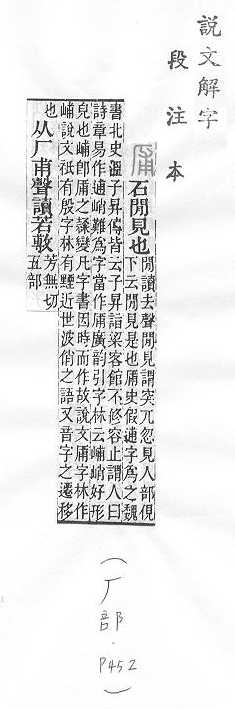 說文解字
段注本
㕊 石閒見也
閒讀去聲閒見謂突兀忽見人部俔
下云閒見是也㕊史假逋字爲之魏
書北史溫子昇傳皆云子昇詣梁客館不修容止謂人曰
詩章易作逋峭難爲字當作㕊廣韵引字林云峬峭好形
皃也峬卽㕊之隷變凡字書因時而作故說文㕊字林作
峬說文祇有殷字林有黫近世波俏之語又音字之遷移
也 从厂甫聲讀若敷 芳無切
五部
(厂部.P452)